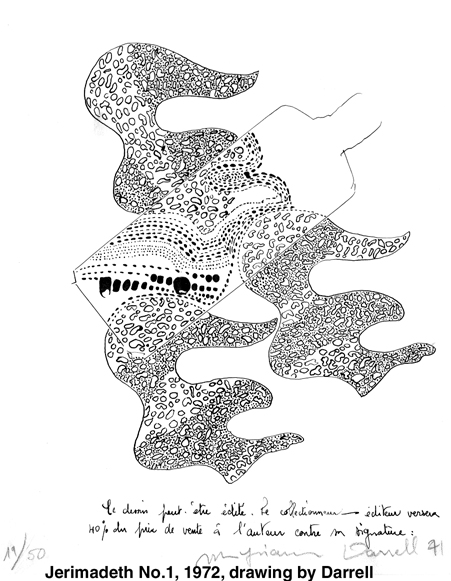 Ce dessin peut être édité. Le collectionneur — éditeur versera
40% du prix de vente à l'auteur contre sa signature :
11/50 Darrell 71
Jerimadeth No.1, 1972, drawing by Darrell